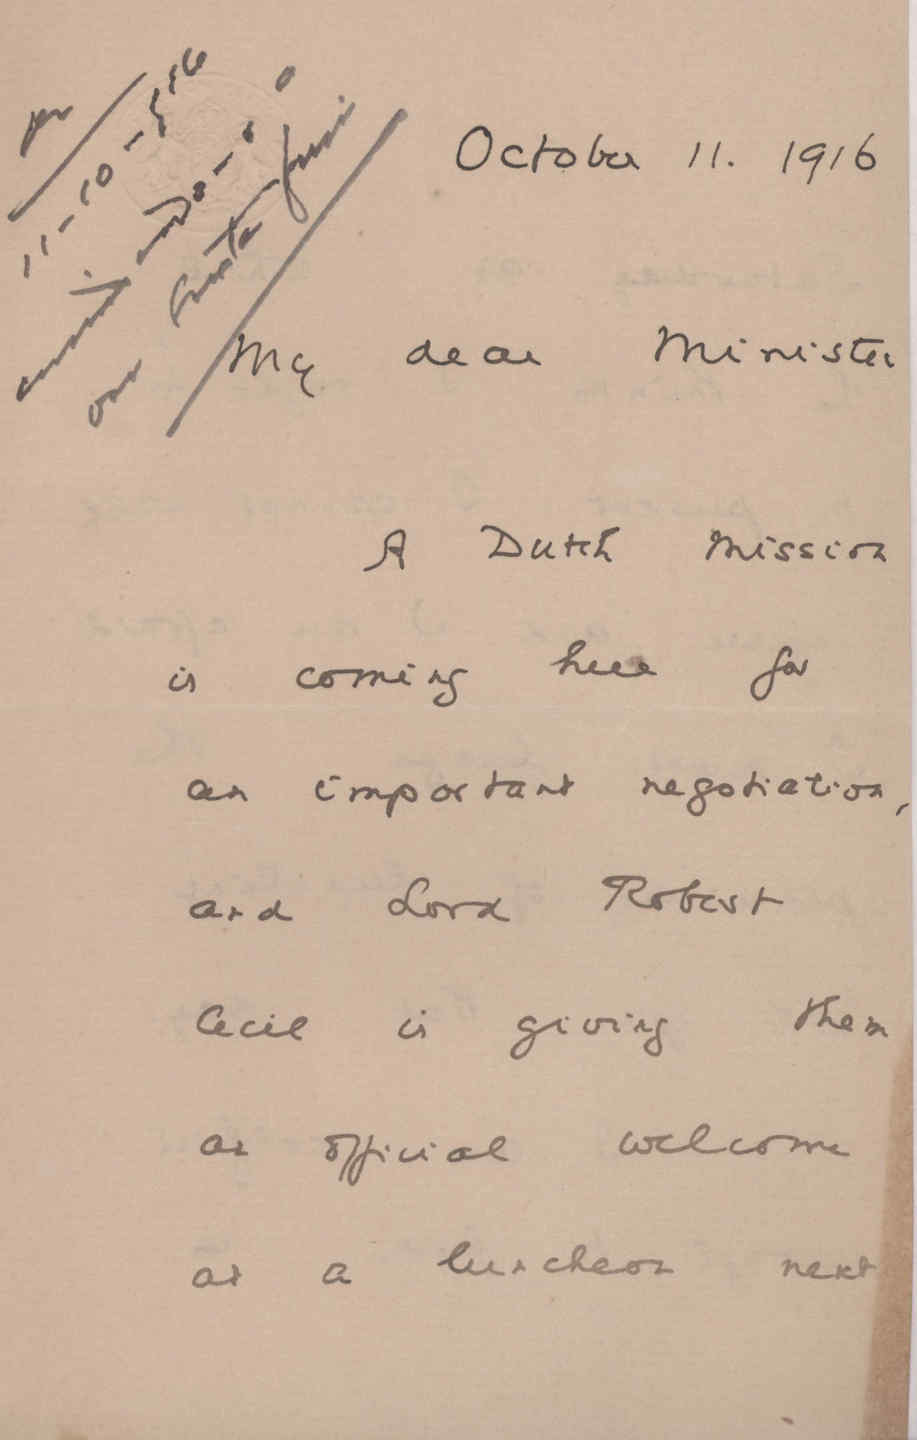 11-10-916
October 11. 1916
My dear Minister
A Dutch Mission
is coming here for
an important negotiation,
and Lord Robert
Cecil is giving them
an official welcome
at a luncheon next